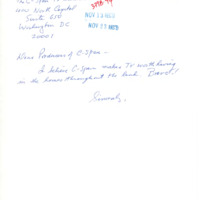 400 North Capitol
Suite 650
Washington DC
20001
NOV 18 REC'D
NOV 27 REC'D
Dear Producers of C-Span -
I believe C-Span makes TV worth having
in the homes throughout the land. Bravo!!
Sincerely,